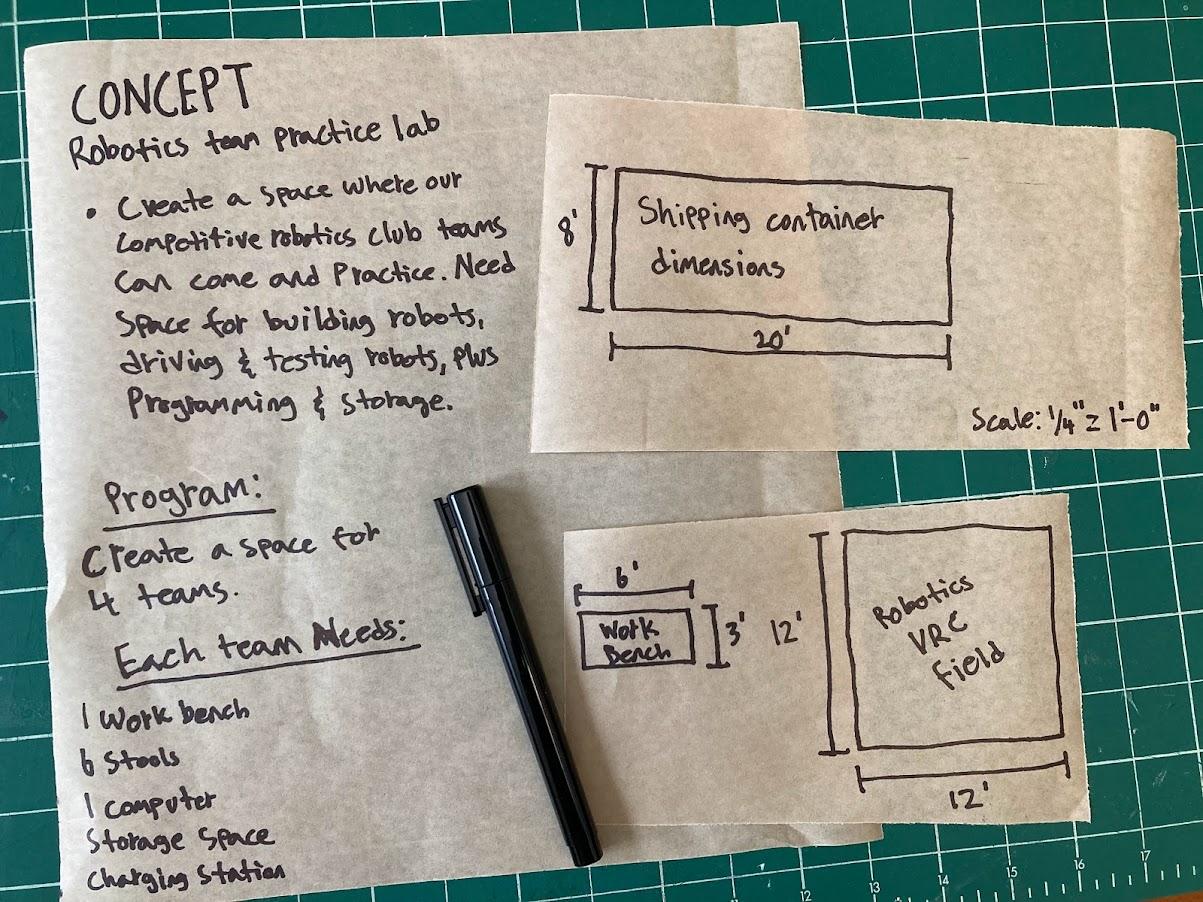 CONCEPT
Robotics team practice lab
• Create a space where our
competitive robotics club teams
can come and Practice. Need
space for building robots,
driving & testing robots, plus
Programming & storage.
Program:
Create a space for
4 teams.
Each team Needs:
1 Work bench
6 Stools
1 computer
Storage Space
Charging Station
8'
Shipping container
dimensions
20'
Scale: 1/4" = 1'-0"
6'
Work
Bench
3'
12'
Robotics
VRC
Field
12'
12
13
14
15
16
17